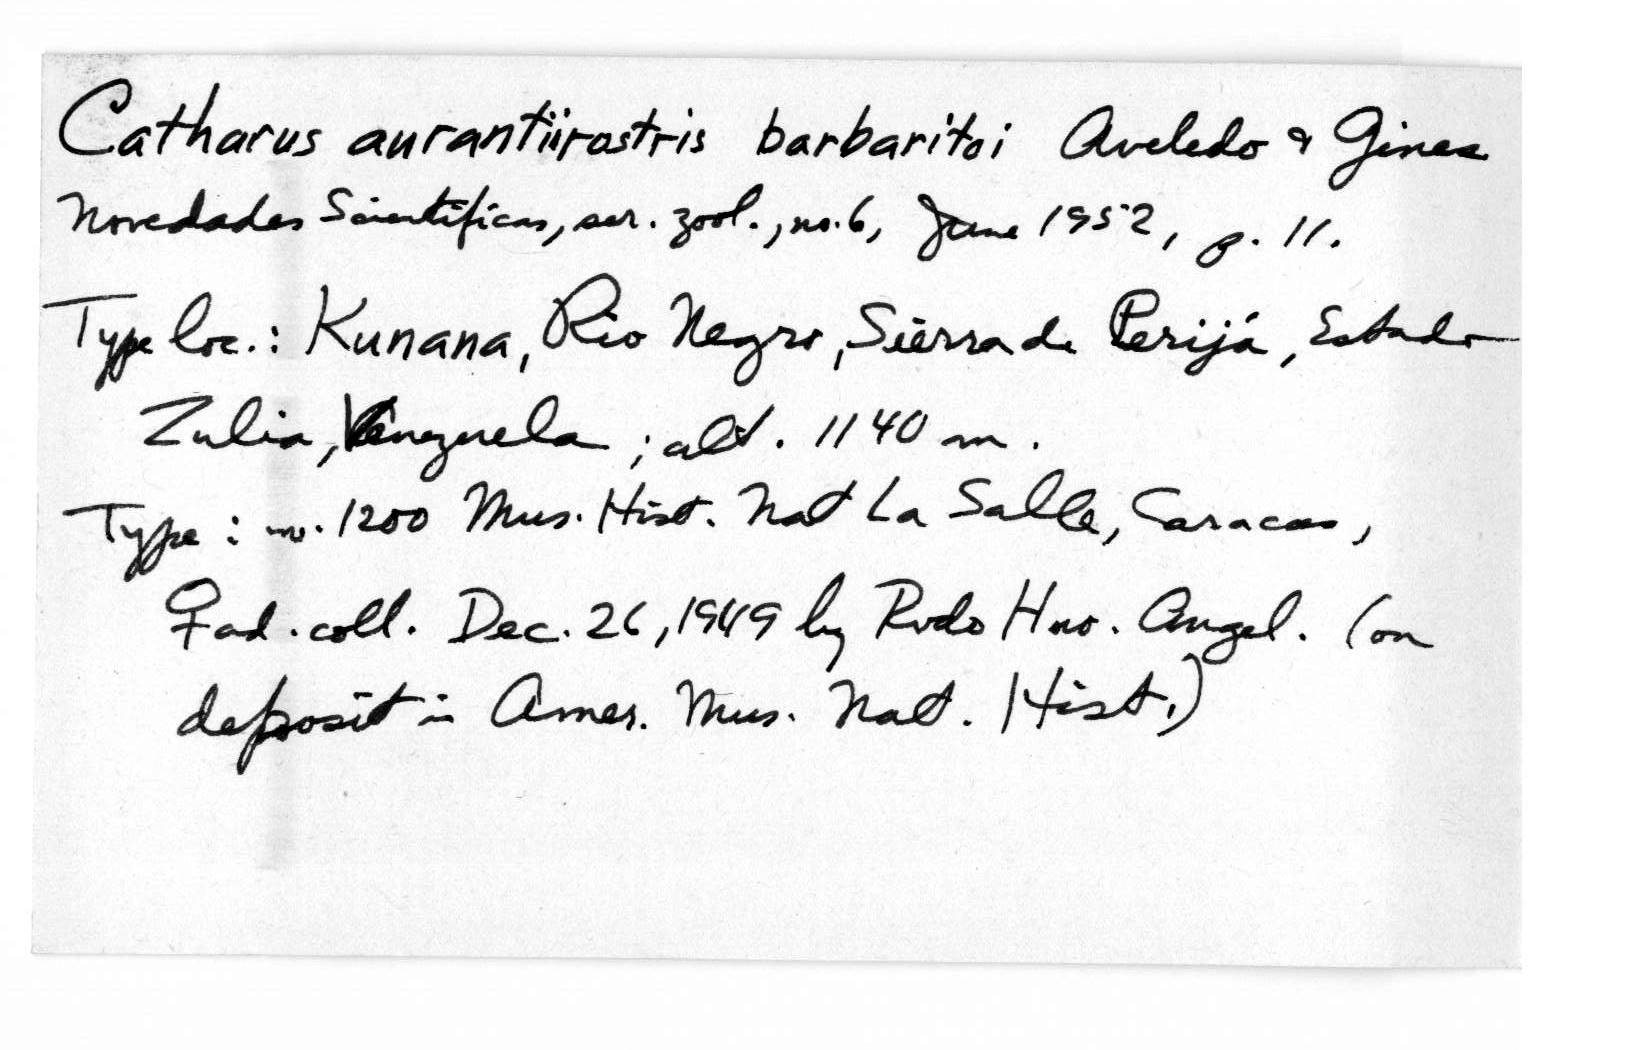 Catharus aurantiirostris barbaritoi Aveledo & Gines
Novedades Scientificas, ser. zool., no. 6, June 1952, p. 11.
Type loc.: Kunana, Rio Negro, Sierra de Perijá, Estado
Zulia, Venezuela; alt. 1140 m.
Type: no. 1200 Mus. Hist. Nat La Salle, Caracas,
♀ ad. coll. Dec. 26, 1949 by Rvdo Hno. Angel. (on
deposit in Amer. Mus. Nat. Hist.)